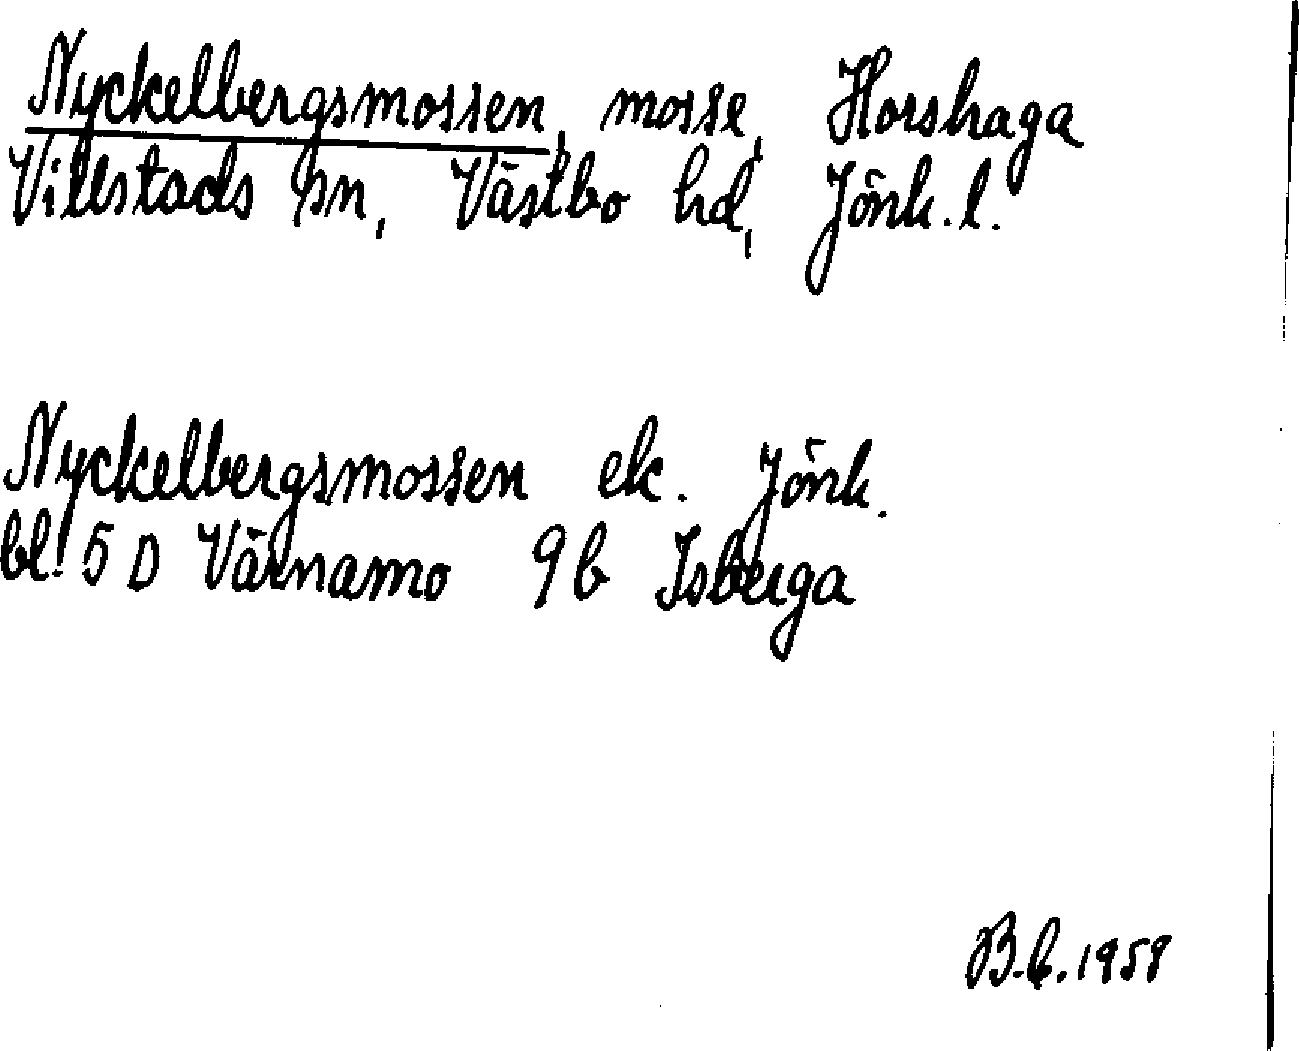 Nyckelbergsmossen, mosse, Horshaga
Villstads sn, Västbo hd, Jönk. l.
Nyckelbergsmossen ek. Jönk.
bl. 5 D Värnamo 9 b Isberga
B.C. 1958